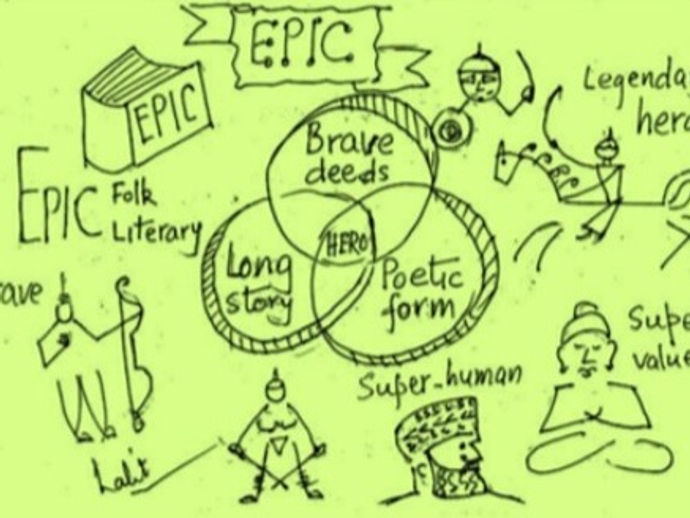 EPIC
EPIC
Legenda
hero
EPIC Folk
Literary
Brave
deeds
HERO
Long
story
Poetic
form
ave
Supe
value
Super-human
Lalit